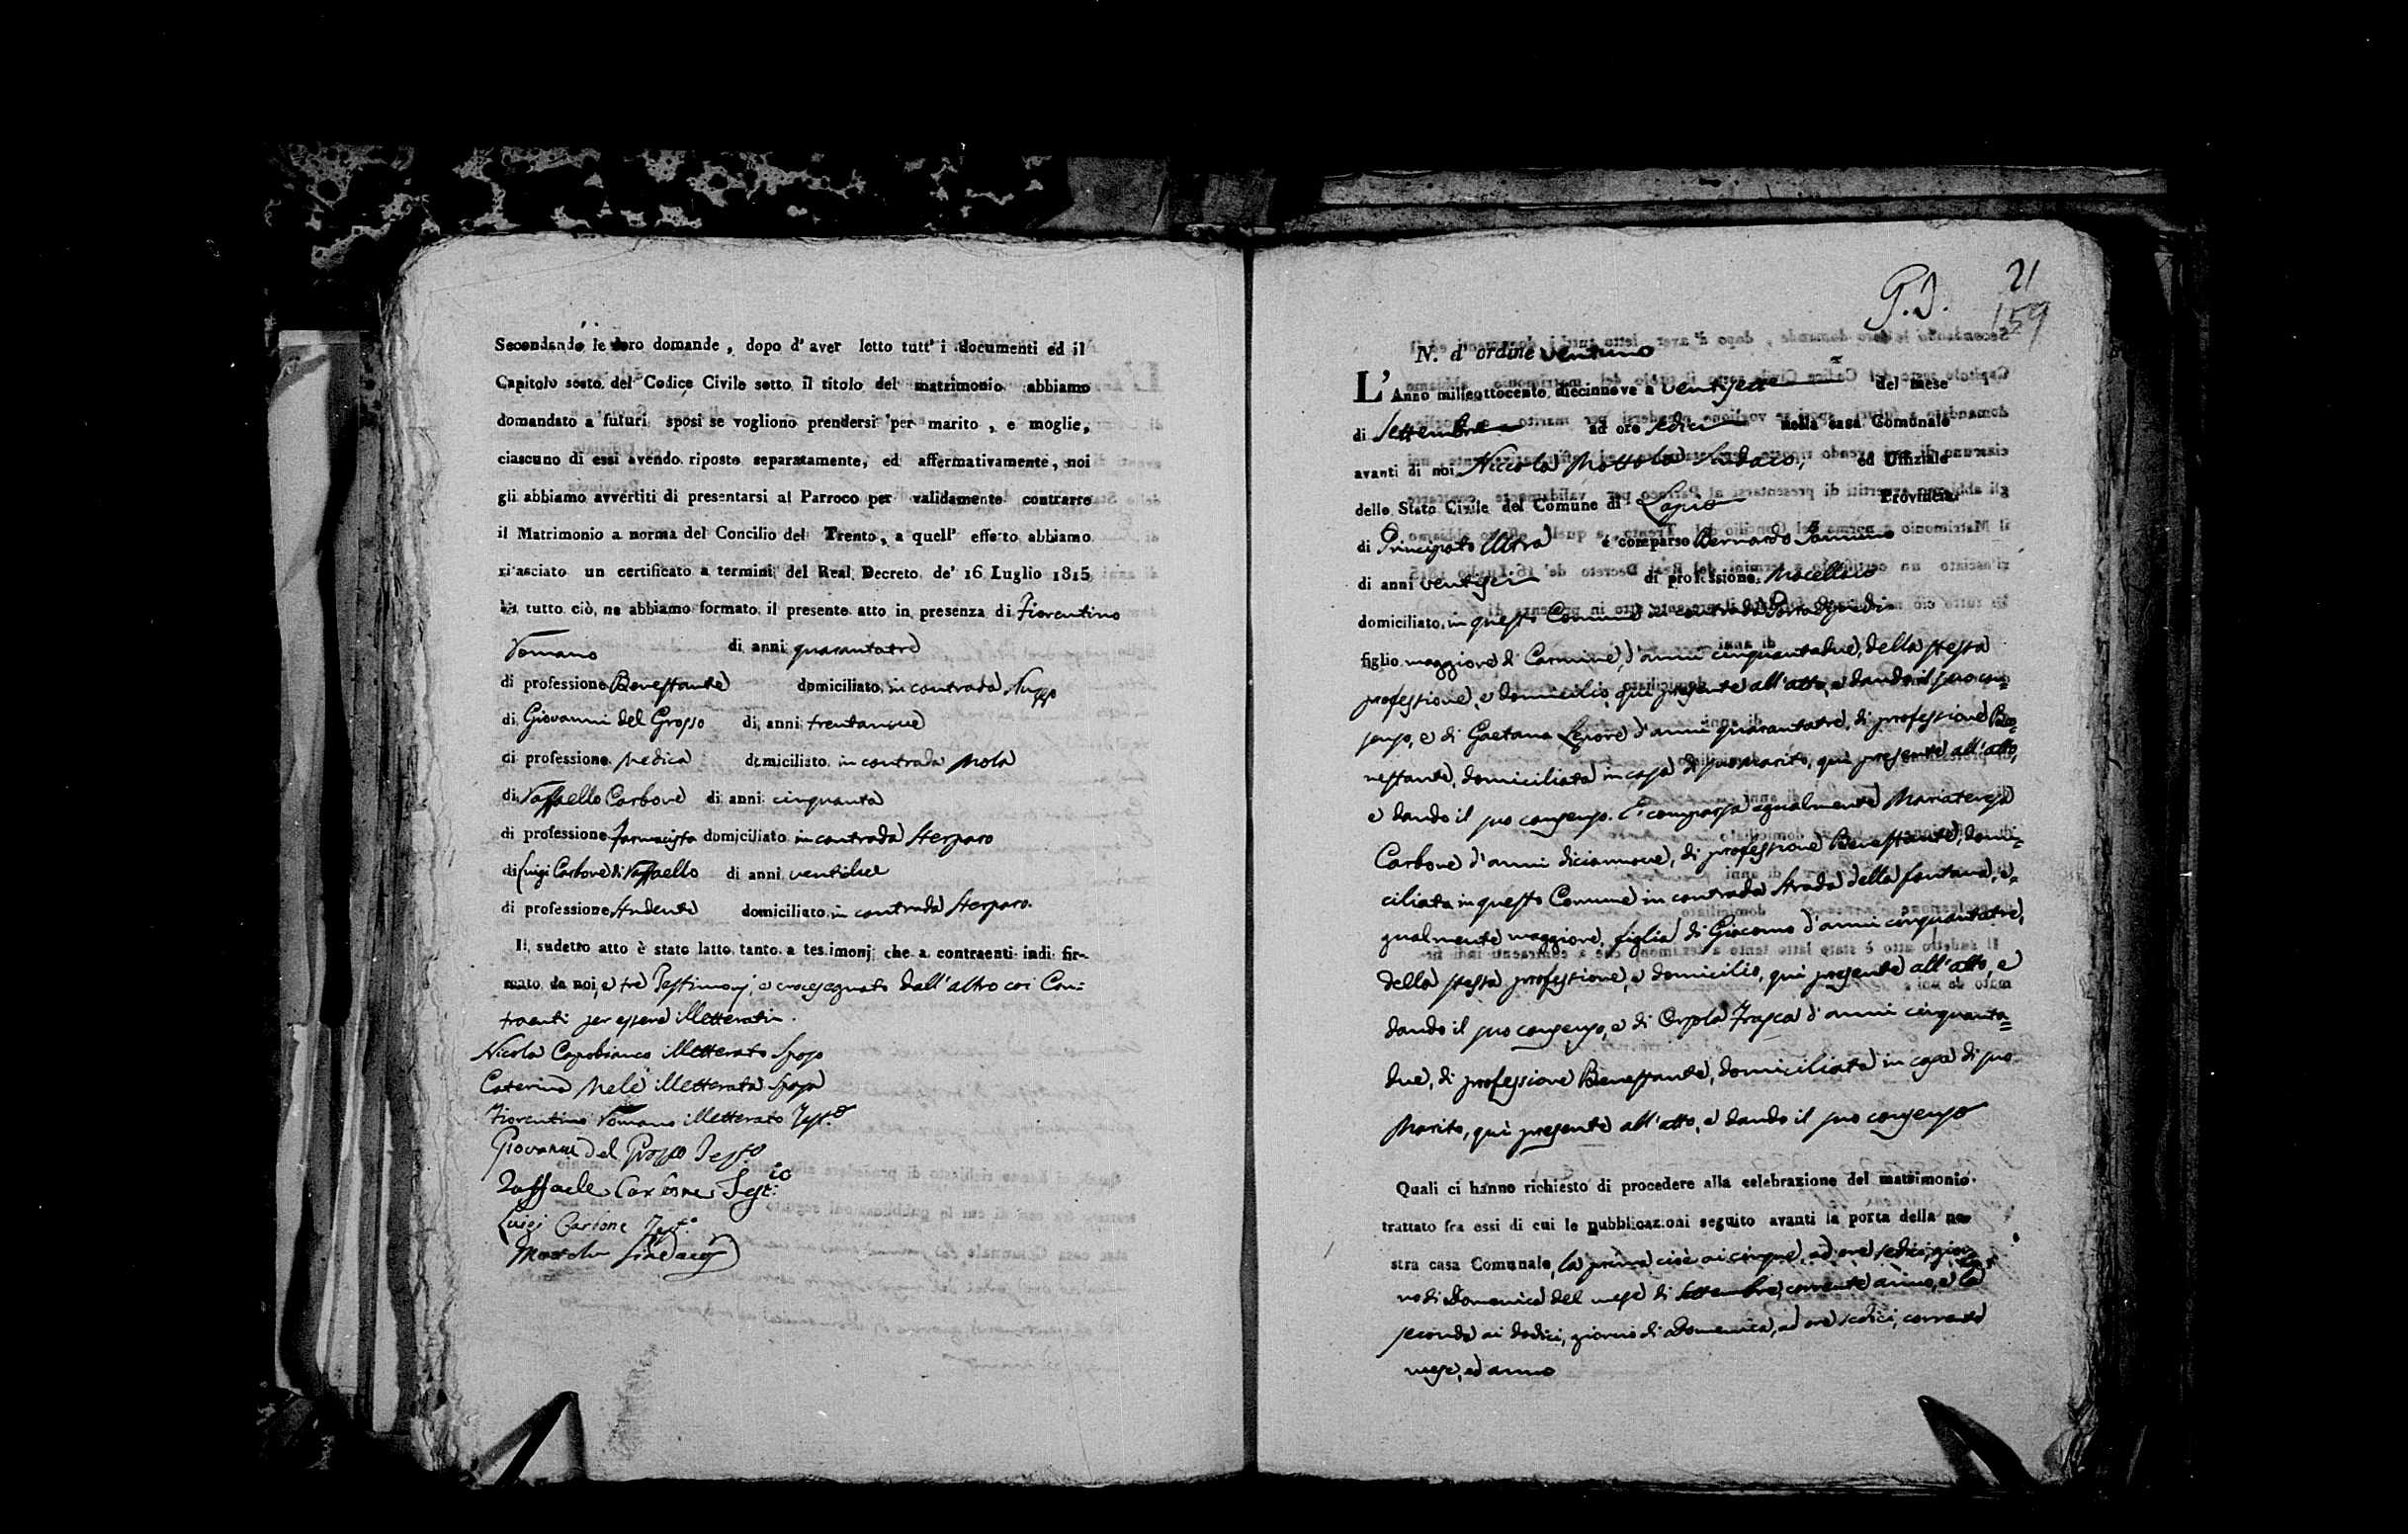 Secondando le loro domande, dopo d'aver letto tutt'i documenti ed il
Capitolo sesto del Codice Civile sotto il titolo del matrimonio abbiamo
domandato a futuri sposi se vogliono prendersi per marito, e moglie,
ciascuno di essi avendo risposto separatamente, ed affermativamente, noi
gli abbiamo avvertiti di presentarsi al Parroco per validamente contrarre
il Matrimonio a norma del Concilio del Trento, a quell' effetto abbiamo
rilasciato un certificato a termini del Real Decreto de' 16 Luglio 1815
Di tutto ciò, ne abbiamo formato il presente atto in presenza di Fiorentino
Romano di anni quarantatre
di professione Benestante domiciliato in contrada
di Giovanni del Grosso di anni trentanove
di professione Medico domiciliato in contrada Mola
di Raffaello Carbone di anni cinquanta
di professione Farmacista domiciliato in contrada Sterparo
di Luigi Carbone di Raffaello di anni ventidue
di professione Studente domiciliato in contrada Sterparo.
Il sudetto atto è stato latto tanto a testimonj che a contraenti indi fir-
mato da noi, e tre Testimonj, e crocesegnato dall'altro coi Con=
traenti per essere illetterati.
Nicola Capobianco illetterato Sposo
Caterina Mele illetterata Sposa
Fiorentino Romano illetterato Test.º
Giovanni del Grosso Testº
Raffaele Carbone Test:io
Luigi Carbone Testº
Mottola Sindaco
P.D. 21
159
N. d'ordine ventuno
L'Anno milleottocento diecinnove a ventisette del mese
di Settembre ad ore sedici nella casa Comunale
avanti di noi Niccola Mottola Sindaco, ed Uffiziale
dello Stato Civile del Comune di Lapio Provincia
di Principato Ultra è comparso Bernardo
di anni ventisei di professione Macellaio
domiciliato in questo Comune in contrada
figlio maggiore di Carmine, d'anni cinquantadue, della stessa
professione, e domicilio, qui presente all'atto, e dando il suo con=
senso, e di Gaetana Lepore d'anni quarantatre, di professione Be=
nestante, domiciliata in casa di suo marito, qui presente all'atto,
e dando il suo consenso. E' comparsa egualmente Mariateresa
Carbone d'anni diciannove, di professione Benestante, domi=
ciliata in questo Comune in contrada Strada della fontana, e=
gualmente maggiore, figlia di Giacomo d'anni cinquantatre,
della stessa professione, e domicilio, qui presente all'atto, e
dando il suo consenso, e di Orsola Frasca d'anni cinquanta=
due, di professione Benestante, domiciliata in casa di suo
Marito, qui presente all'atto, e dando il suo consenso
Quali ci hanno richiesto di procedere alla celebrazione del matrimonio
trattato fra essi di cui le pubblicazioni seguito avanti la porta della no-
stra casa Comunale, la prima cioè ai cinque, ad ore sedici, gior=
no di Domenica del mese di Settembre, corrente anno, e la
seconda ai dodici, giorno di Domenica, ad ore sedici, corrente
mese, ed anno